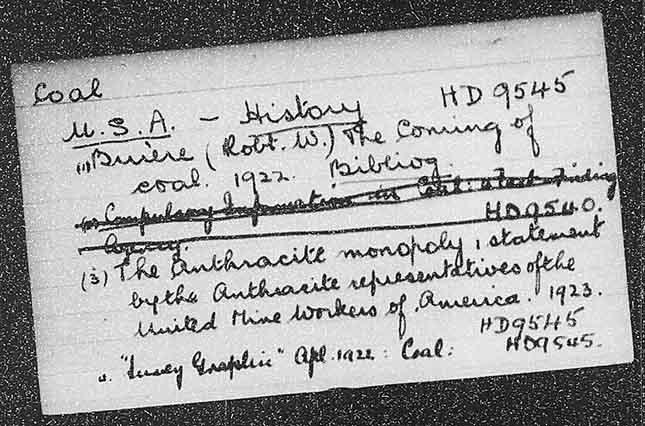 Coal
U.S.A. - History HD 9545
(1) Bruère (Robt. W.) The Coming of
coal. 1922. Bibliog.
(2) Compulsory Information in Coal: a Fact Finding
Agency. HD9540.
(3) The Anthracite monopoly, statement
by the Anthracite representatives of the
United Mine Workers of America. 1923.
HD9545
4. "Survey Graphic" Apl. 1922: Coal: HD9545.